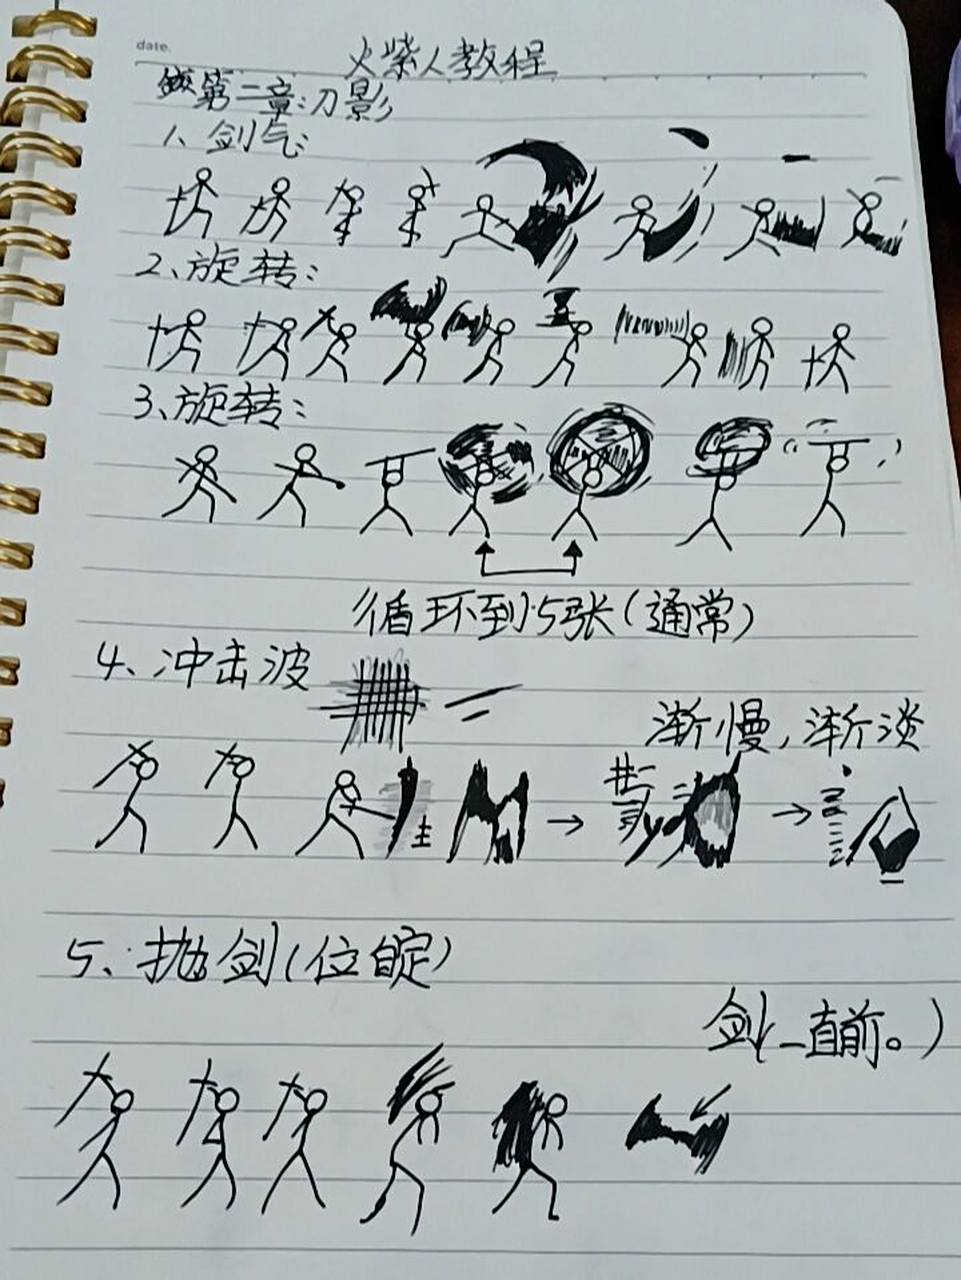 date.
火紫人教程
第二章:刀影
1、剑气:
2、旋转:
3、旋转:
循环到15张(通常)
4、冲击波
渐慢,渐淡
5、抛剑(位腚)
剑一直前。)